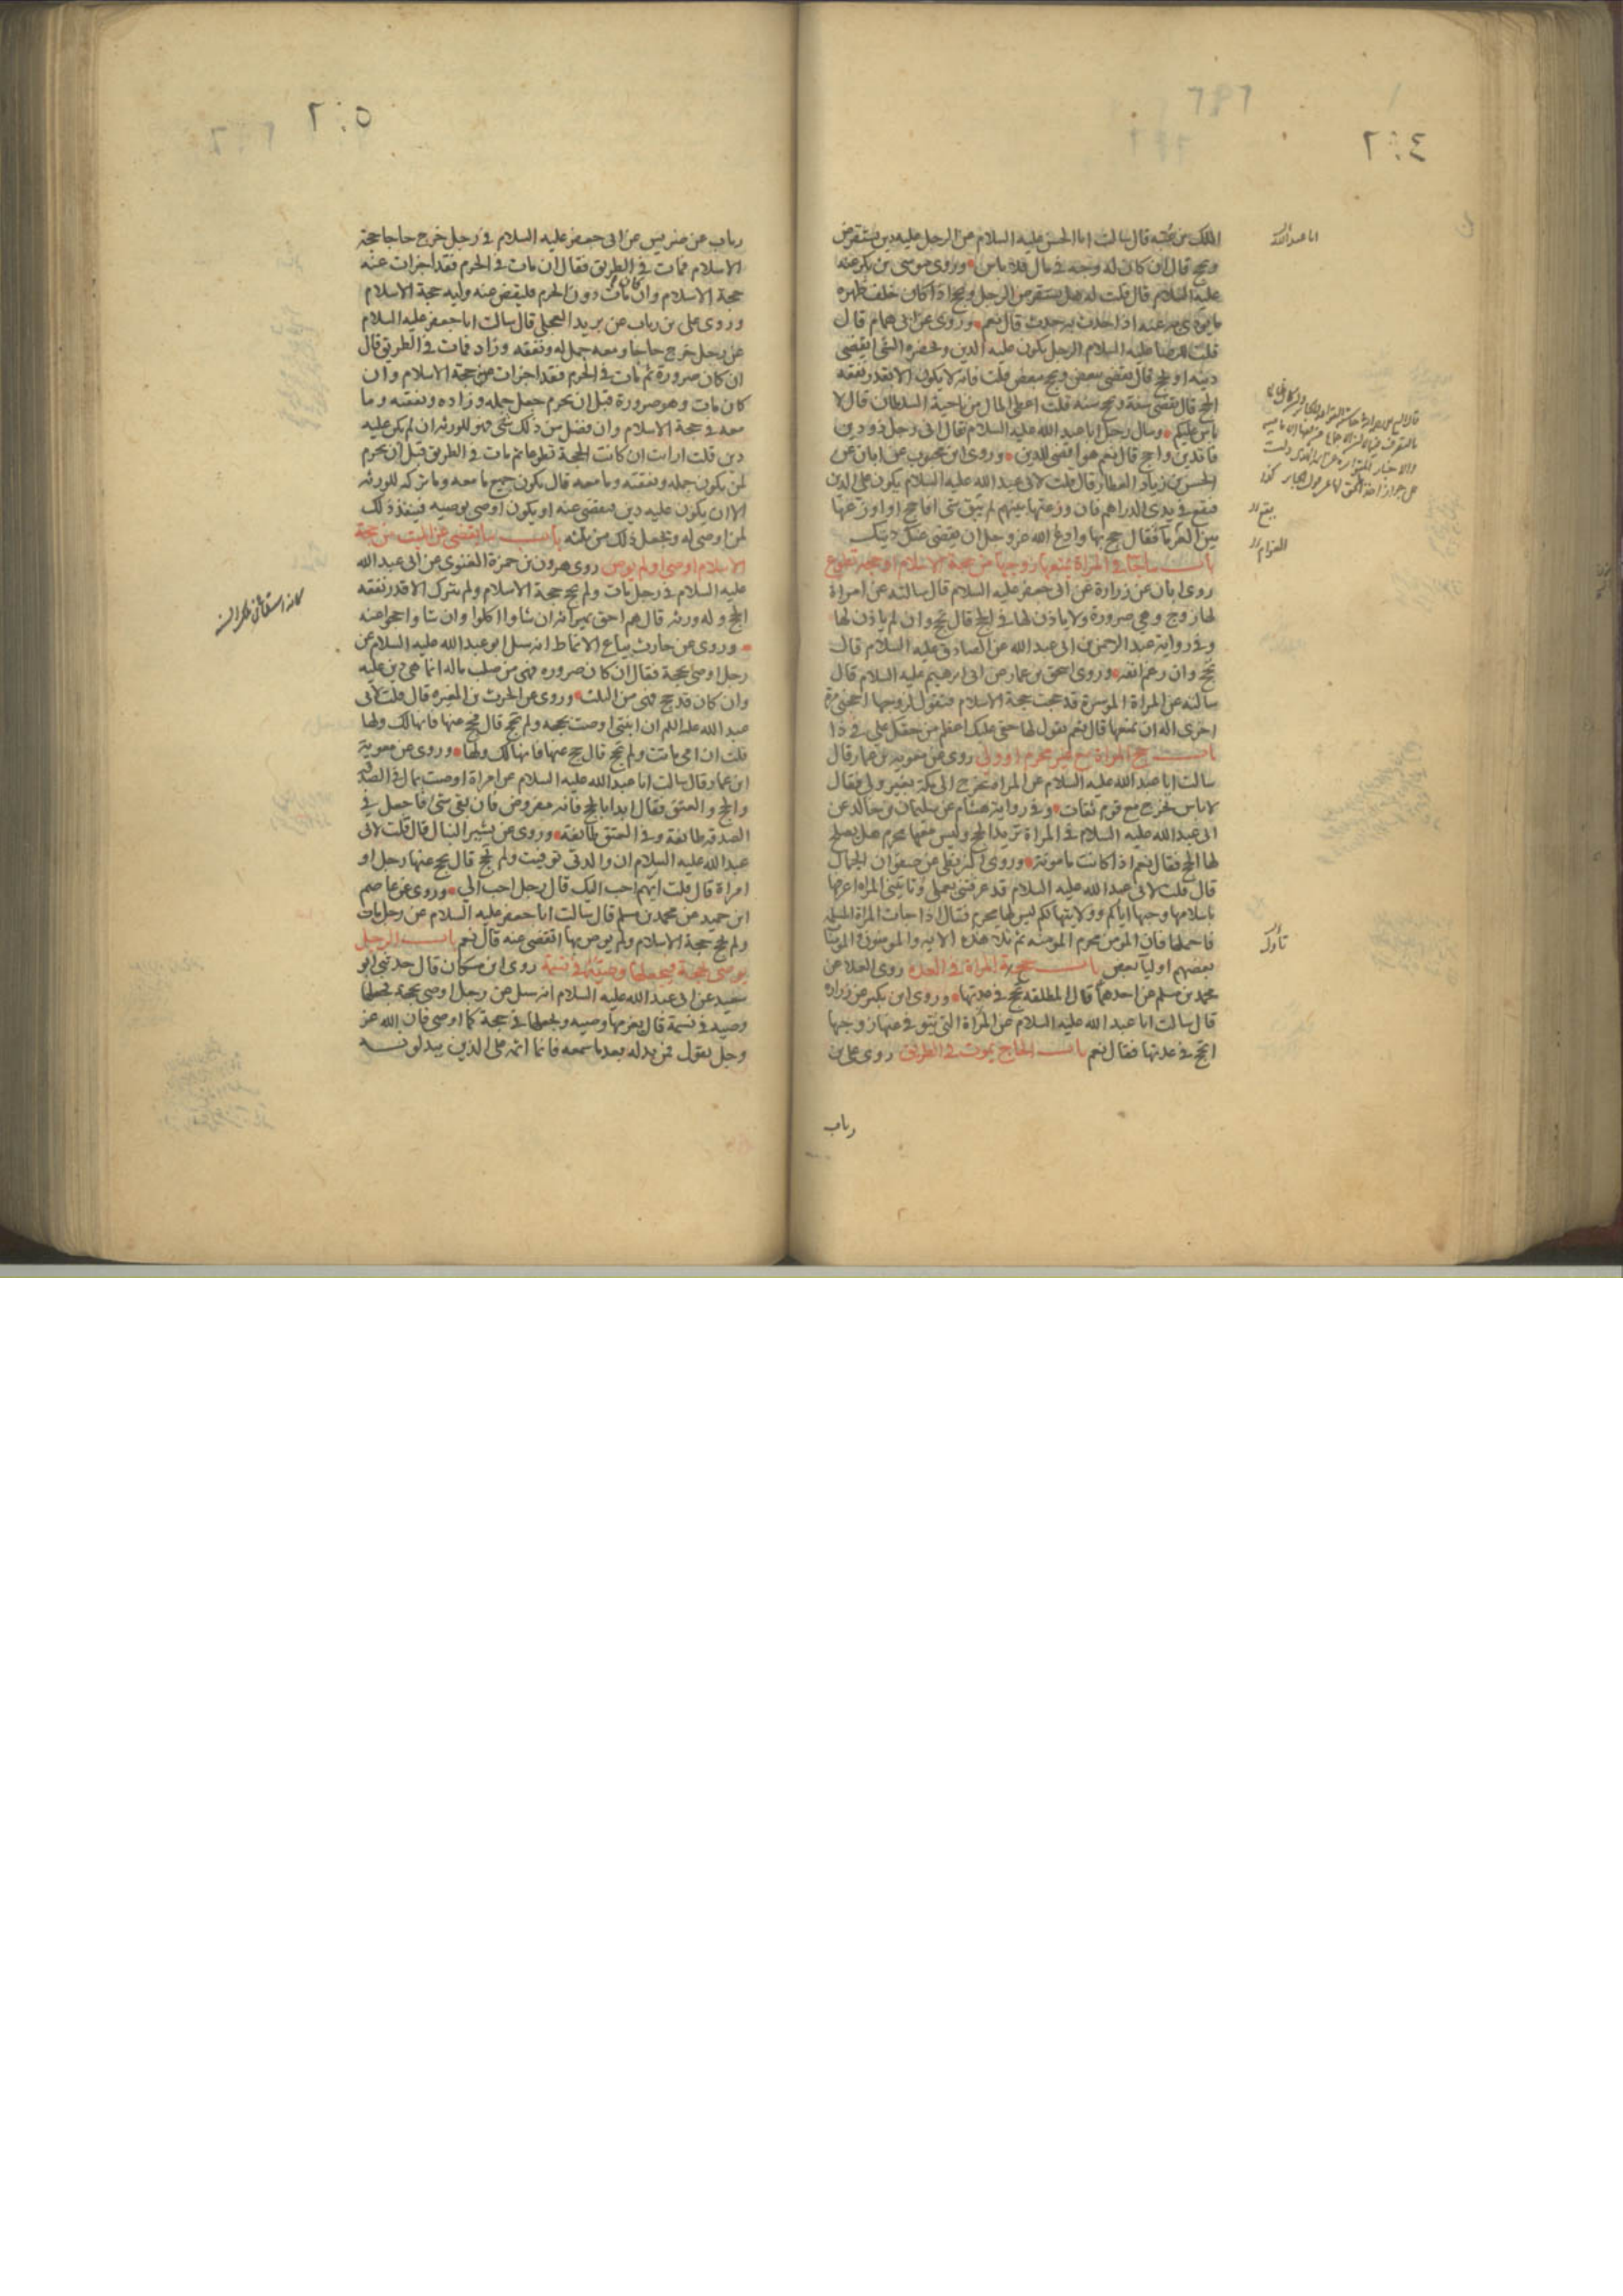 ٢٠٤
الملك بن عتبه قال سالت ابا الحسن عليه السلام عن الرجل عليه دين يستقرض
ويحج قال ان كان له وجه في مال فلا باس وروى موسى بن بكر عنه
عليه السلام قال قلت له هل يستقرض الرجل ويحج اذا كان خلف ظهره
ما يودى به عنه اذا حدث به حدث قال نعم وروى عن ابى همام قال
قلت للرضا عليه السلام الرجل يكون عليه الدين ويحضره الشى ايقضى
دينه او يحج قال يقضى ببعض ويحج ببعض قلت فانه لا يكون الا بقدر نفقه
الحج قال يقضى سنة ويحج سنه قلت اعطى المال من ناحية السلطان قال لا
باس عليكم وسال رجل ابا عبد الله عليه السلام فقال انى رجل ذو دين
فاتدين واحج قال نعم هو اقضى للدين وروى ابن محبوب عن ابان عن
الحسن بن زياد العطار قال قلت لابى عبد الله عليه السلام يكون على الدين
فيقع في يدى الدراهم فان وزعتها بينهم لم يبق شى افاحج او اوزعها
بين الغرما فقال حج بها وادع الله عز وجل ان يقضى عنك دينك
باب ما جآ في المراة يمنعها زوجها من حجة الاسلام او حجة تطوع
روى ابان عن زرارة عن ابى جعفر عليه السلام قال سالته عن امراة
لها زوج وهي صرورة ولا ياذن لها في الحج قال تحج وان لم ياذن لها
وفي رواية عبد الرحمن بن ابى عبد الله عن الصادق عليه السلام قال
تحج وان رغم انفه وروى اسحق بن عمار عن ابى ابرهيم عليه السلام قال
سالته عن المراة الموسرة قد حجت حجة الاسلام فتقول لزوجها احجنى مرة
اخرى اله ان يمنعها قال نعم يقول لها حقى عليك اعظم من حقك على في ذا
باب حج المراة مع غير محرم او ولى روى عن معويه بن عمار قال
سالت ابا عبد الله عليه السلام عن المراه تخرج الى مكة بغير ولى فقال
لا باس تخرج مع قوم ثقات وفي رواية هشام عن سليمان بن خالد عن
ابى عبد الله عليه السلام في المراة تريد الحج وليس معها محرم هل يصلح
لها الحج فقال نعم اذا كانت مامونة وروى البزنطى عن صفوان الجمال
قال قلت لابى عبد الله عليه السلام قد عرفتنى بعملى وتاتينى المراه اعرفها
باسلامها وحبها اياكم وولايتها لكم ليس لها محرم فقال اذا جات المراة المسلمه
فاحملها فان المومن محرم المومنه ثم تلا هذه الايه والمومنون والمومنات
بعضهم اوليآ بعض باب حجة المراة في العدة روى العلا عن
محمد بن مسلم عن احدهما قال المطلقه تحج في عدتها وروى ابن بكير عن زراره
قال سالت ابا عبد الله عليه السلام عن المراة التى يتوفى عنها زوجها
اتحج في عدتها فقال نعم باب الحاج يموت في الطريق روى على بن
رباب
ابا عبد الله
يبق
الغرام
تاول
٢٠٥
رباب عن ضريس عن ابى جعفر عليه السلام في رجل خرج حاجا حجة
الاسلام فمات في الطريق فقال ان مات في الحرم فقد اجزات عنه
حجة الاسلام وان كان مات دون الحرم فليقض عنه وليه حجة الاسلام
وروى على بن رباب عن بريد العجلى قال سالت ابا جعفر عليه السلام
عن رجل خرج حاجا ومعه جمل له ونفقه وزاد فمات في الطريق قال
ان كان صرورة ثم مات في الحرم فقد اجزات عن حجة الاسلام وان
كان مات وهو صرورة قبل ان يحرم جعل جمله وزاده ونفقته وما
معه في حجة الاسلام وان فضل من ذلك شى فهو للورثه ان لم يكن عليه
دين قلت ارايت ان كانت الحجة تطوعا ثم مات في الطريق قبل ان يحرم
لمن يكون جمله ونفقته وما معه قال يكون جميع ما معه وما تركه للورثه
الا ان يكون عليه دين فيقضى عنه او يكون اوصى بوصيه فينفذ ذلك
لمن اوصى له ويجعل ذلك من ثلثه باب ما يقضى عن الميت من حجة
الاسلام اوصى او لم يوص روى هرون بن حمزة الغنوى عن ابى عبد الله
عليه السلام في رجل مات ولم يحج حجة الاسلام ولم يترك الا قدر نفقه
الحج وله ورثه قال هم احق بميراثه ان شاوا اكلوا وان شاوا حجوا عنه
وروى عن حارث بياع الانماط انه سئل ابو عبد الله عليه السلام عن
رجل اوصى بحجة فقال ان كان صروره فهى من صلب ماله انما هى دين عليه
وان كان قد حج فهى من الثلث وروى عن الحرث بن المغيره قال قلت لابى
عبد الله عليه السلام ان ابنتى اوصت بحجه ولم تحج قال فحج عنها فانها لك ولها
قلت ان امى ماتت ولم تحج قال حج عنها فانها لك ولها وروى عن معوية
ابن عمار قال سالت ابا عبد الله عليه السلام عن امراة اوصت بمال في الصدقه
والحج والعتق فقال ابدا بالحج فانه مفروض فان بقى شى فاجعل في
الصدقه طائفة وفي العتق طائفة وروى عن بشير النبال قال قلت لابى
عبد الله عليه السلام ان والدتى توفيت ولم تحج قال يحج عنها رجل او
امراة قال قلت ايهم احب اليك قال رجل احب الى وروى عن عاصم
ابن حميد عن محمد بن مسلم قال سالت ابا جعفر عليه السلام عن رجل مات
ولم يحج حجة الاسلام ولم يوص بها اتقضى عنه قال نعم باب الرجل
يوصى بحجة فيجعلها وصيه في نسمة روى ابن مسكان قال حدثنى ابو
سعيد عن ابى عبد الله عليه السلام انه سئل عن رجل اوصى بحجة فجعلها
وصيه في نسمة قال يغرمها وصيه ويجعلها في حجة كما اوصى فان الله عز
وجل يقول فمن بدله بعد ما سمعه فانما اثمه على الذين يبدلونه